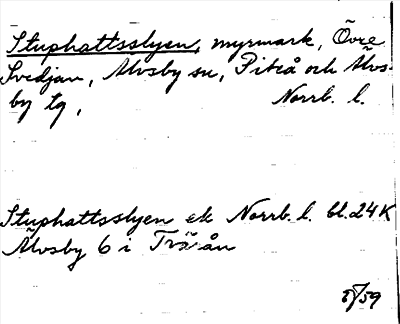 Stuphattsslyen, myrmark, Övre
Svedjan, Älvsby sn, Piteå och Älvs-
by tg, Norrb. l.
Stuphattsslyen ek Norrb. l. bl. 24K
Älvsby 6 i Träån
59